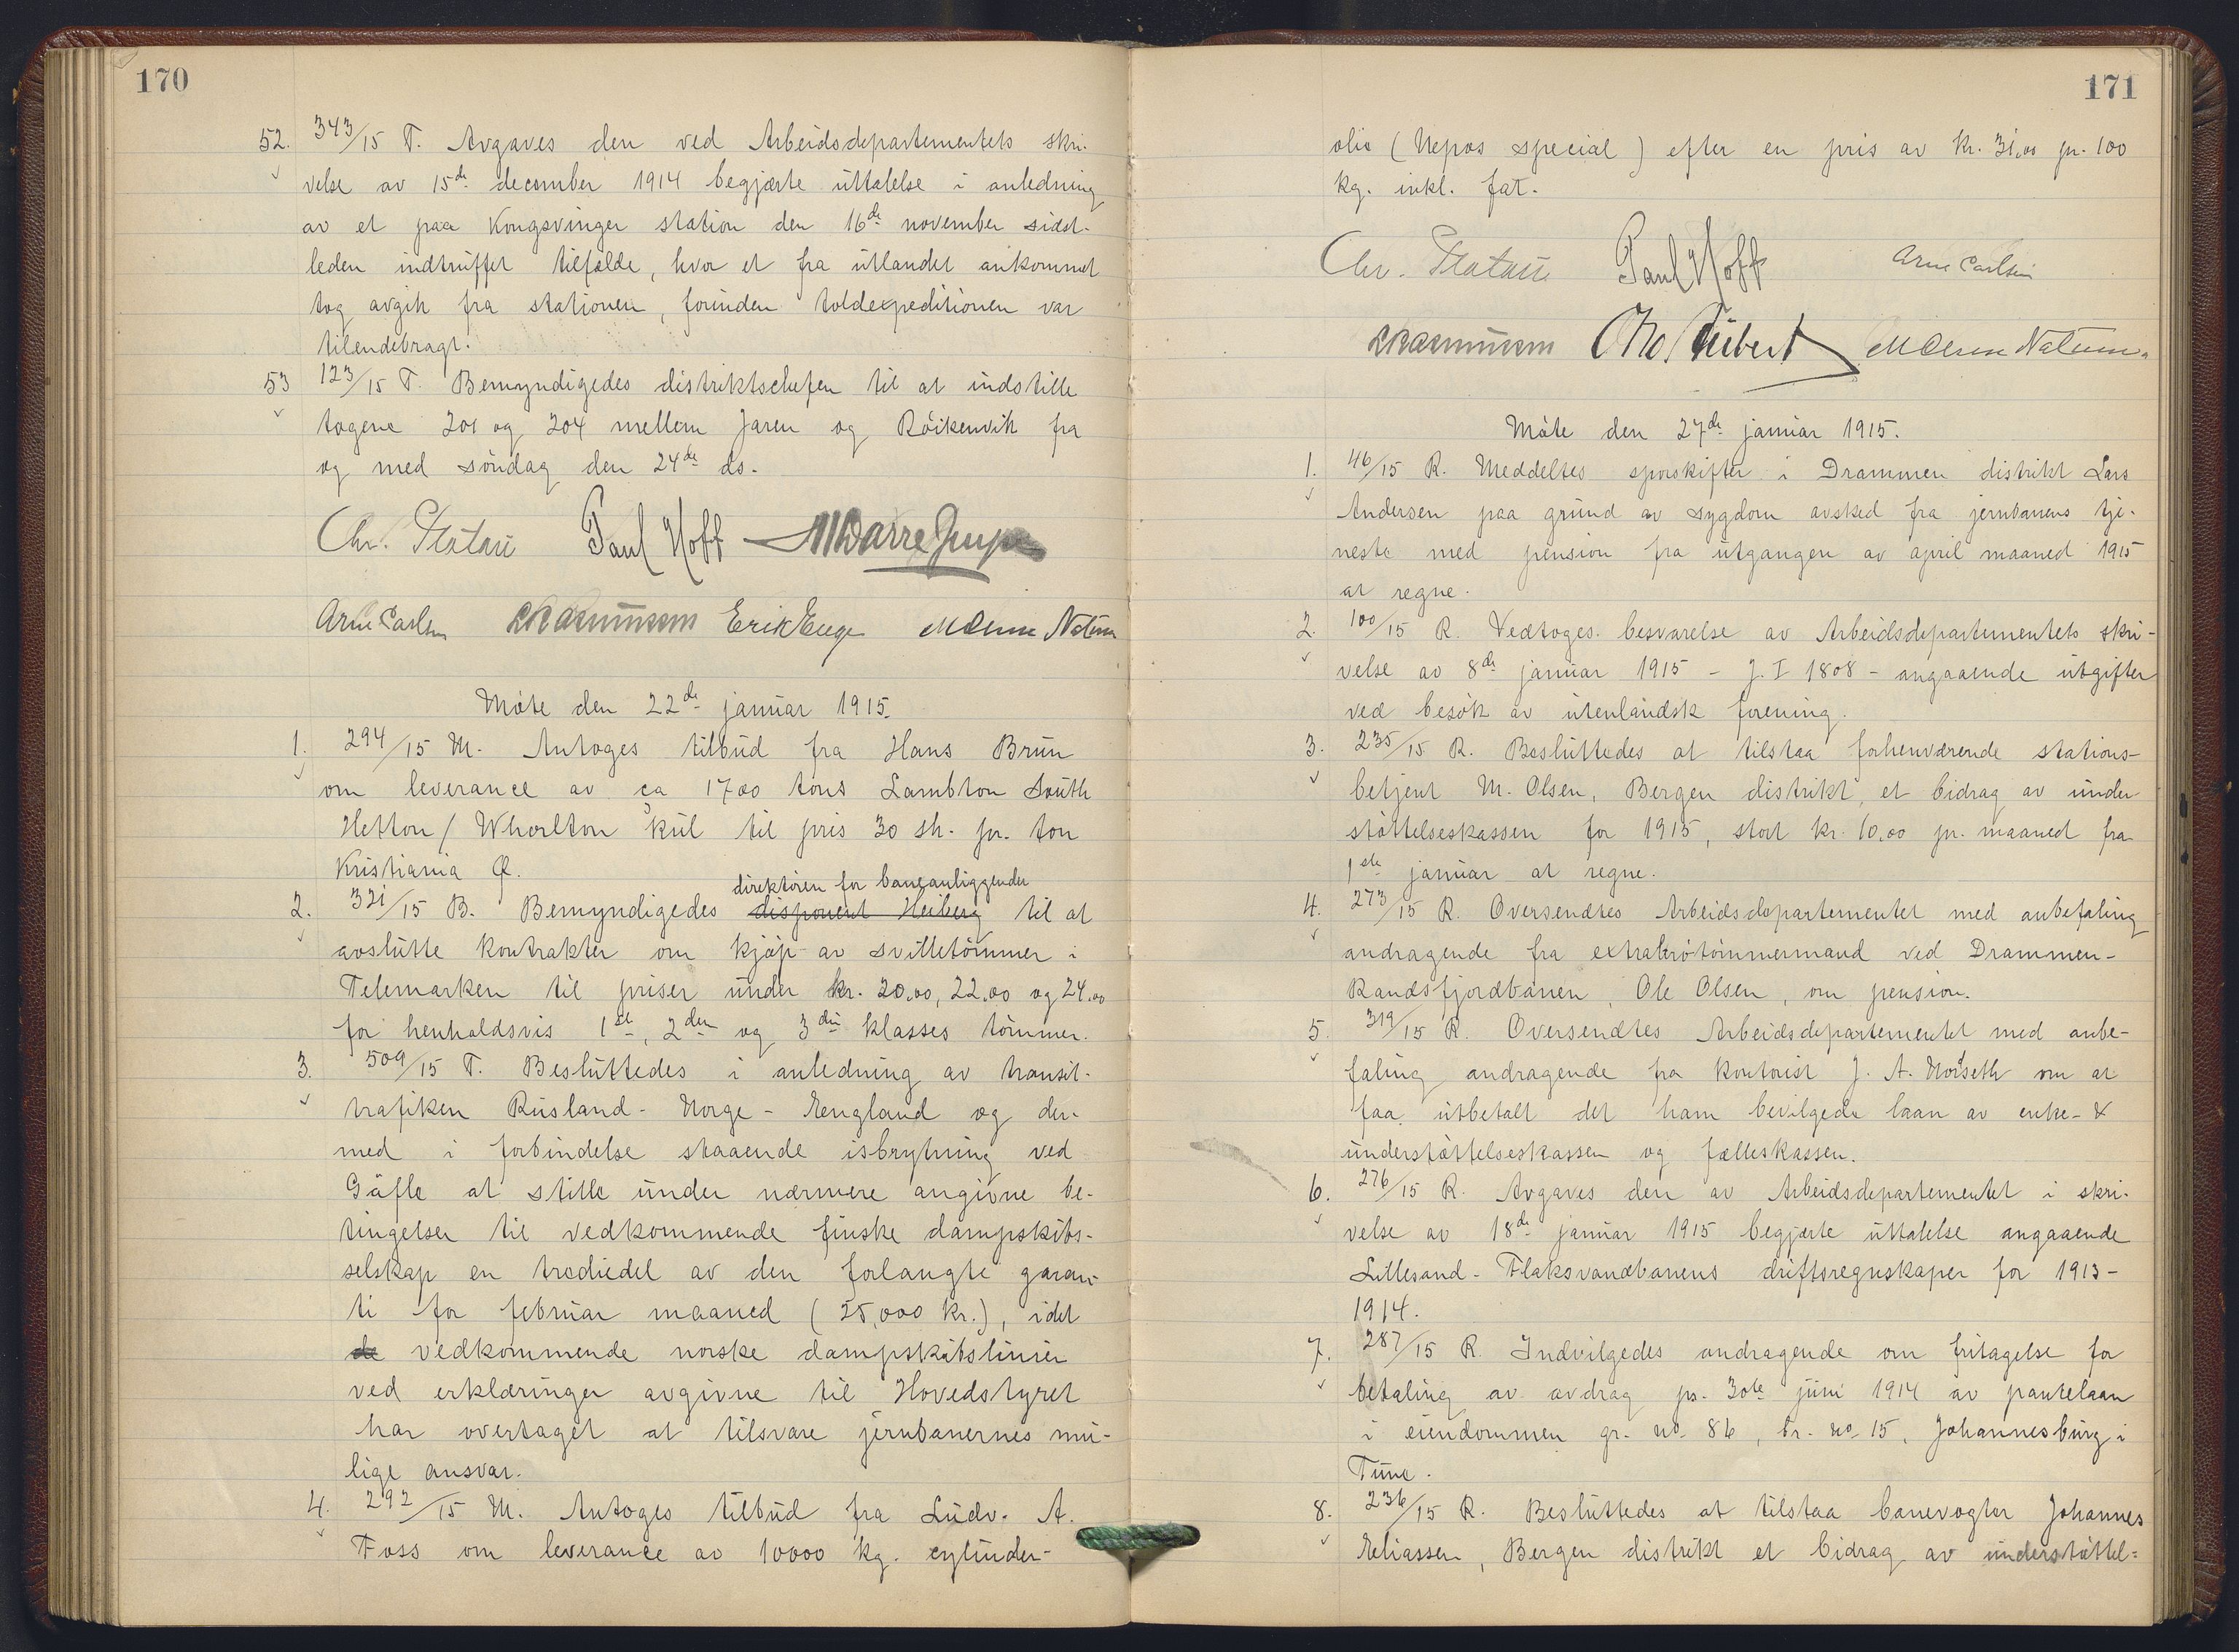 170
52. 343/15 T. Avgaves den ved Arbeidsdepartementets skri-
velse av 15de december 1914 begjærte uttalelse i anledning
av et paa Kongsvinger station den 16de november sidst-
leden indtruffet tilfælde, hvor et fra utlandet ankommet
tog avgik fra stationen, forinden toldexpeditionen var
tilendebragt.
53 123/15 T. Bemyndigedes distriktschefen til at indstille
togene 201 og 204 mellem Jaren og Röikenvik fra
og med söndag den 24de ds.
Chr. Platou Paul Hoff
Arne Carlsen CRasmussen Erik Enge
Möte den 22de januar 1915.
1. 294/15 M. Antoges tilbud fra Hans Brun
om leverance av ca 1700 tons Lambton South
Hetton / Whorlton kul til pris 30 sh. pr. ton
Kristiania Ø.
direktören for baneanliggender
2. 321/15 B. Bemyndigedes disponent Heiberg til at
avslutte kontrakter om kjöp av svilletömmer i
Telemarken til priser under kr. 20.00, 22.00 og 24.00
for henholdsvis 1ste, 2den og 3die klasses tömmer.
3. 509/15 T. Besluttedes i anledning av transit-
trafiken Rusland - Norge - England og der-
med i forbindelse staaende isbrytning ved
Gäfle at stille under nærmere angivne be-
tingelser til vedkommende finske dampskibs-
selskap en trediedel av den forlangte garan-
ti for februar maaned (25,000 kr.), idet
de vedkommende norske dampskibslinier
ved erklæringer avgivne til Hovedstyret
har overtaget at tilsvare jernbanernes mu-
lige ansvar.
4. 292/15 M. Antoges tilbud fra Ludv. A.
Foss om leverance av 10000 kg. cylinder-
171
olie (Nepos special) efter en pris av kr. 31,00 pr. 100
kg. inkl. fat.
Chr. Platou Paul Hoff Arne Carlsen
CRasmussen
Möte den 27de januar 1915.
1. 46/15 R. Meddeltes sporskifter i Drammen distrikt Lars
Andersen paa grund av sygdom avsked fra jernbanens tje-
neste med pension fra utgangen av april maaned 1915
at regne.
2. 100/15 R. Vedtoges besvarelse av Arbeidsdepartementets skri-
velse av 8de januar 1915 - J. I 1808 - angaaende utgifter
ved besök av utenlandsk forening.
3. 235/15 R. Besluttedes at tilstaa forhenværende stations-
betjent M. Olsen, Bergen distrikt, et bidrag av under
støttelseskassen for 1915, stort kr. 10,00 pr. maaned fra
1ste januar at regne.
4. 273/15 R. Oversendtes Arbeidsdepartementet med anbefaling
andragende fra extrabrotömmermand ved Drammen-
Randsfjordbanen, Ole Olsen, om pension.
5. 319/15 R. Oversendtes Arbeidsdepartementet med anbe-
faling andragende fra kontorist J. A. Norseth om at
faa utbetalt det ham bevilgede laan av enke- &
understöttelseskassen og fælleskassen.
6. 276/15 R. Avgaves den av Arbeidsdepartementet i skri-
velse av 18de januar 1915 begjærte uttalelse angaaende
Lillesand - Flaksvandbanens driftsregnskaper for 1913-
1914.
7. 287/15 R. Indvilgedes andragende om fritagelse for
betaling av avdrag pr. 30te juni 1914 av pantelaan
i eiendommen gr. no. 86, br. no 15, Johannesburg i
Tune.
8. 236/15 R. Besluttedes at tilstaa banevogter Johannes
Eliassen, Bergen distrikt et bidrag av understøttel-